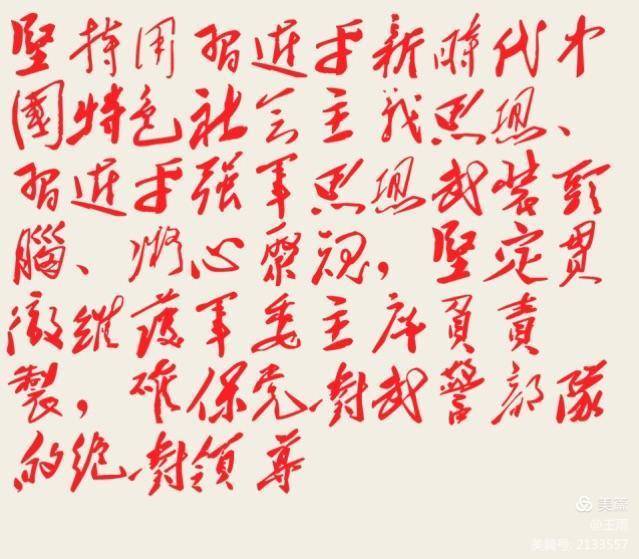 堅持用習近平新時代中
國特色社会主義思想、
習近平强軍思想武裝頭
腦、凝心聚魂，堅定貫
徹維護軍委主席負責
製，確保党對武警部隊
的绝對領導
美篇
@王涌
美篇号: 2133557